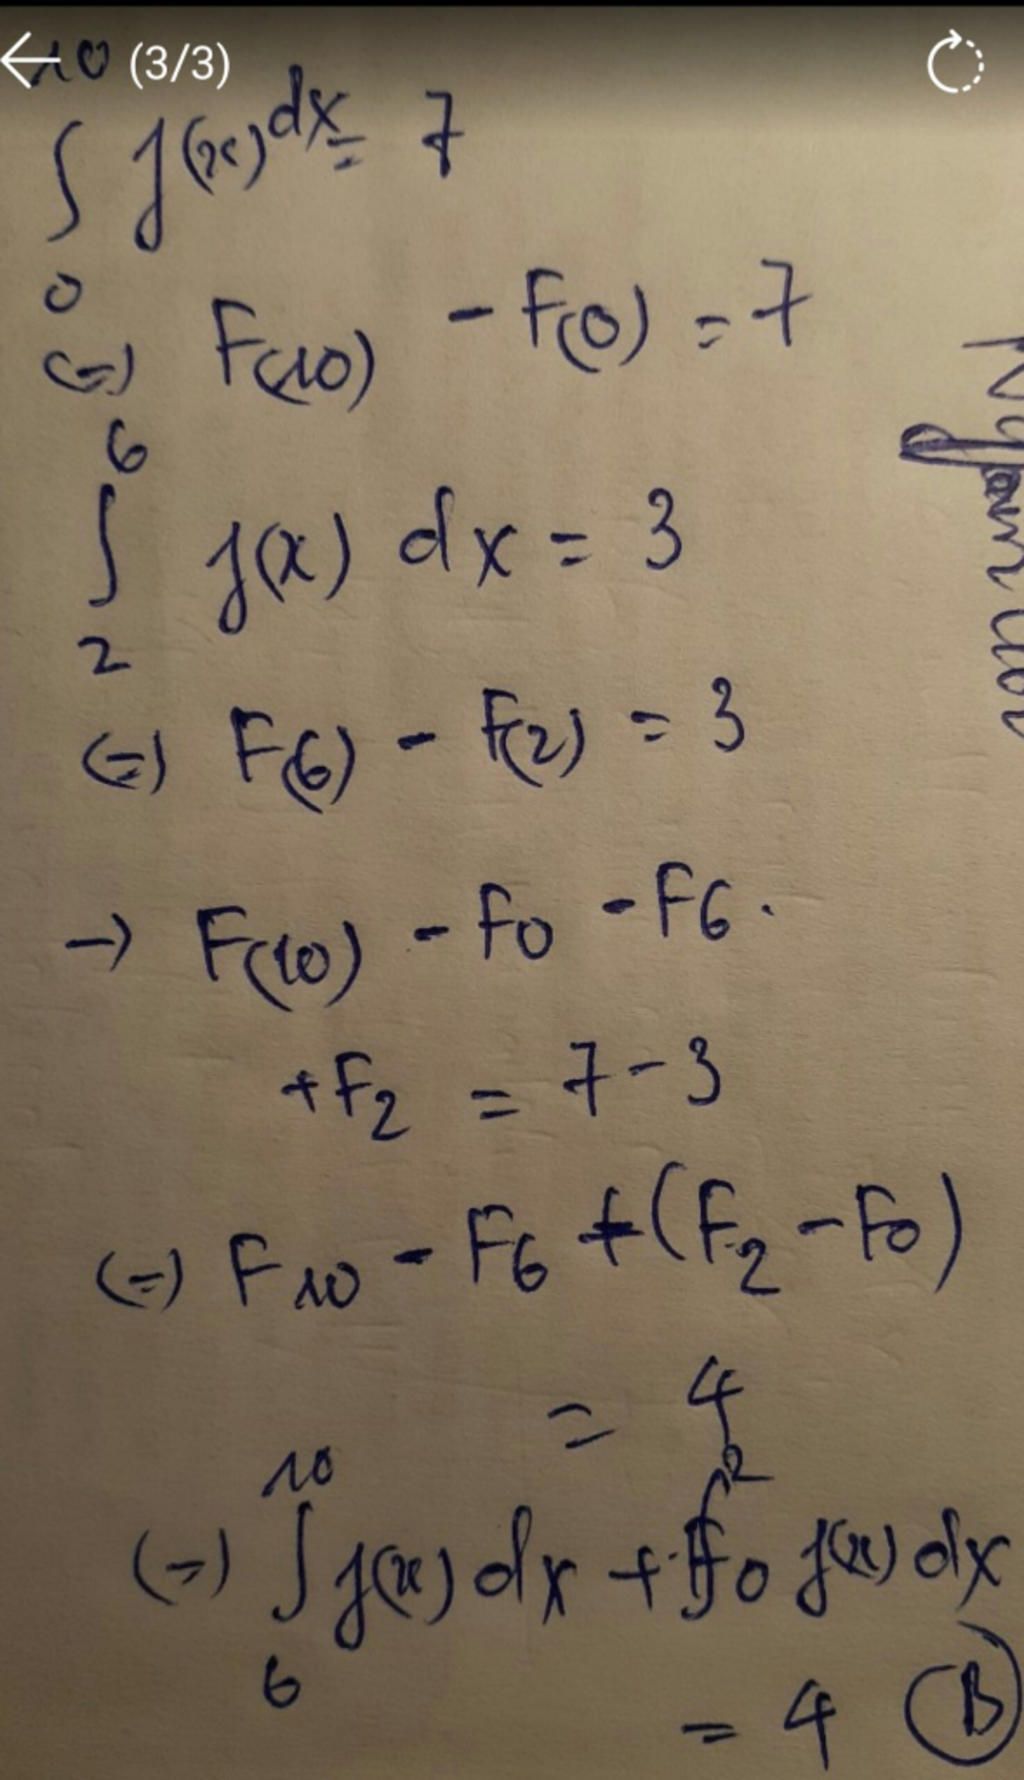 10 (3/3)
∫ f(x) dx = 7
0
(=) F(10) - F(0) = 7
6
∫ f(x) dx = 3
2
(=) F(6) - F(2) = 3
→ F(10) - F0 - F6.
+F2 = 7-3
(=) F10 - F6 + (F2 - F0)
= 4
10 2
(=) ∫ f(x) dx + ∫0 f(x) dx
6
= 4 B